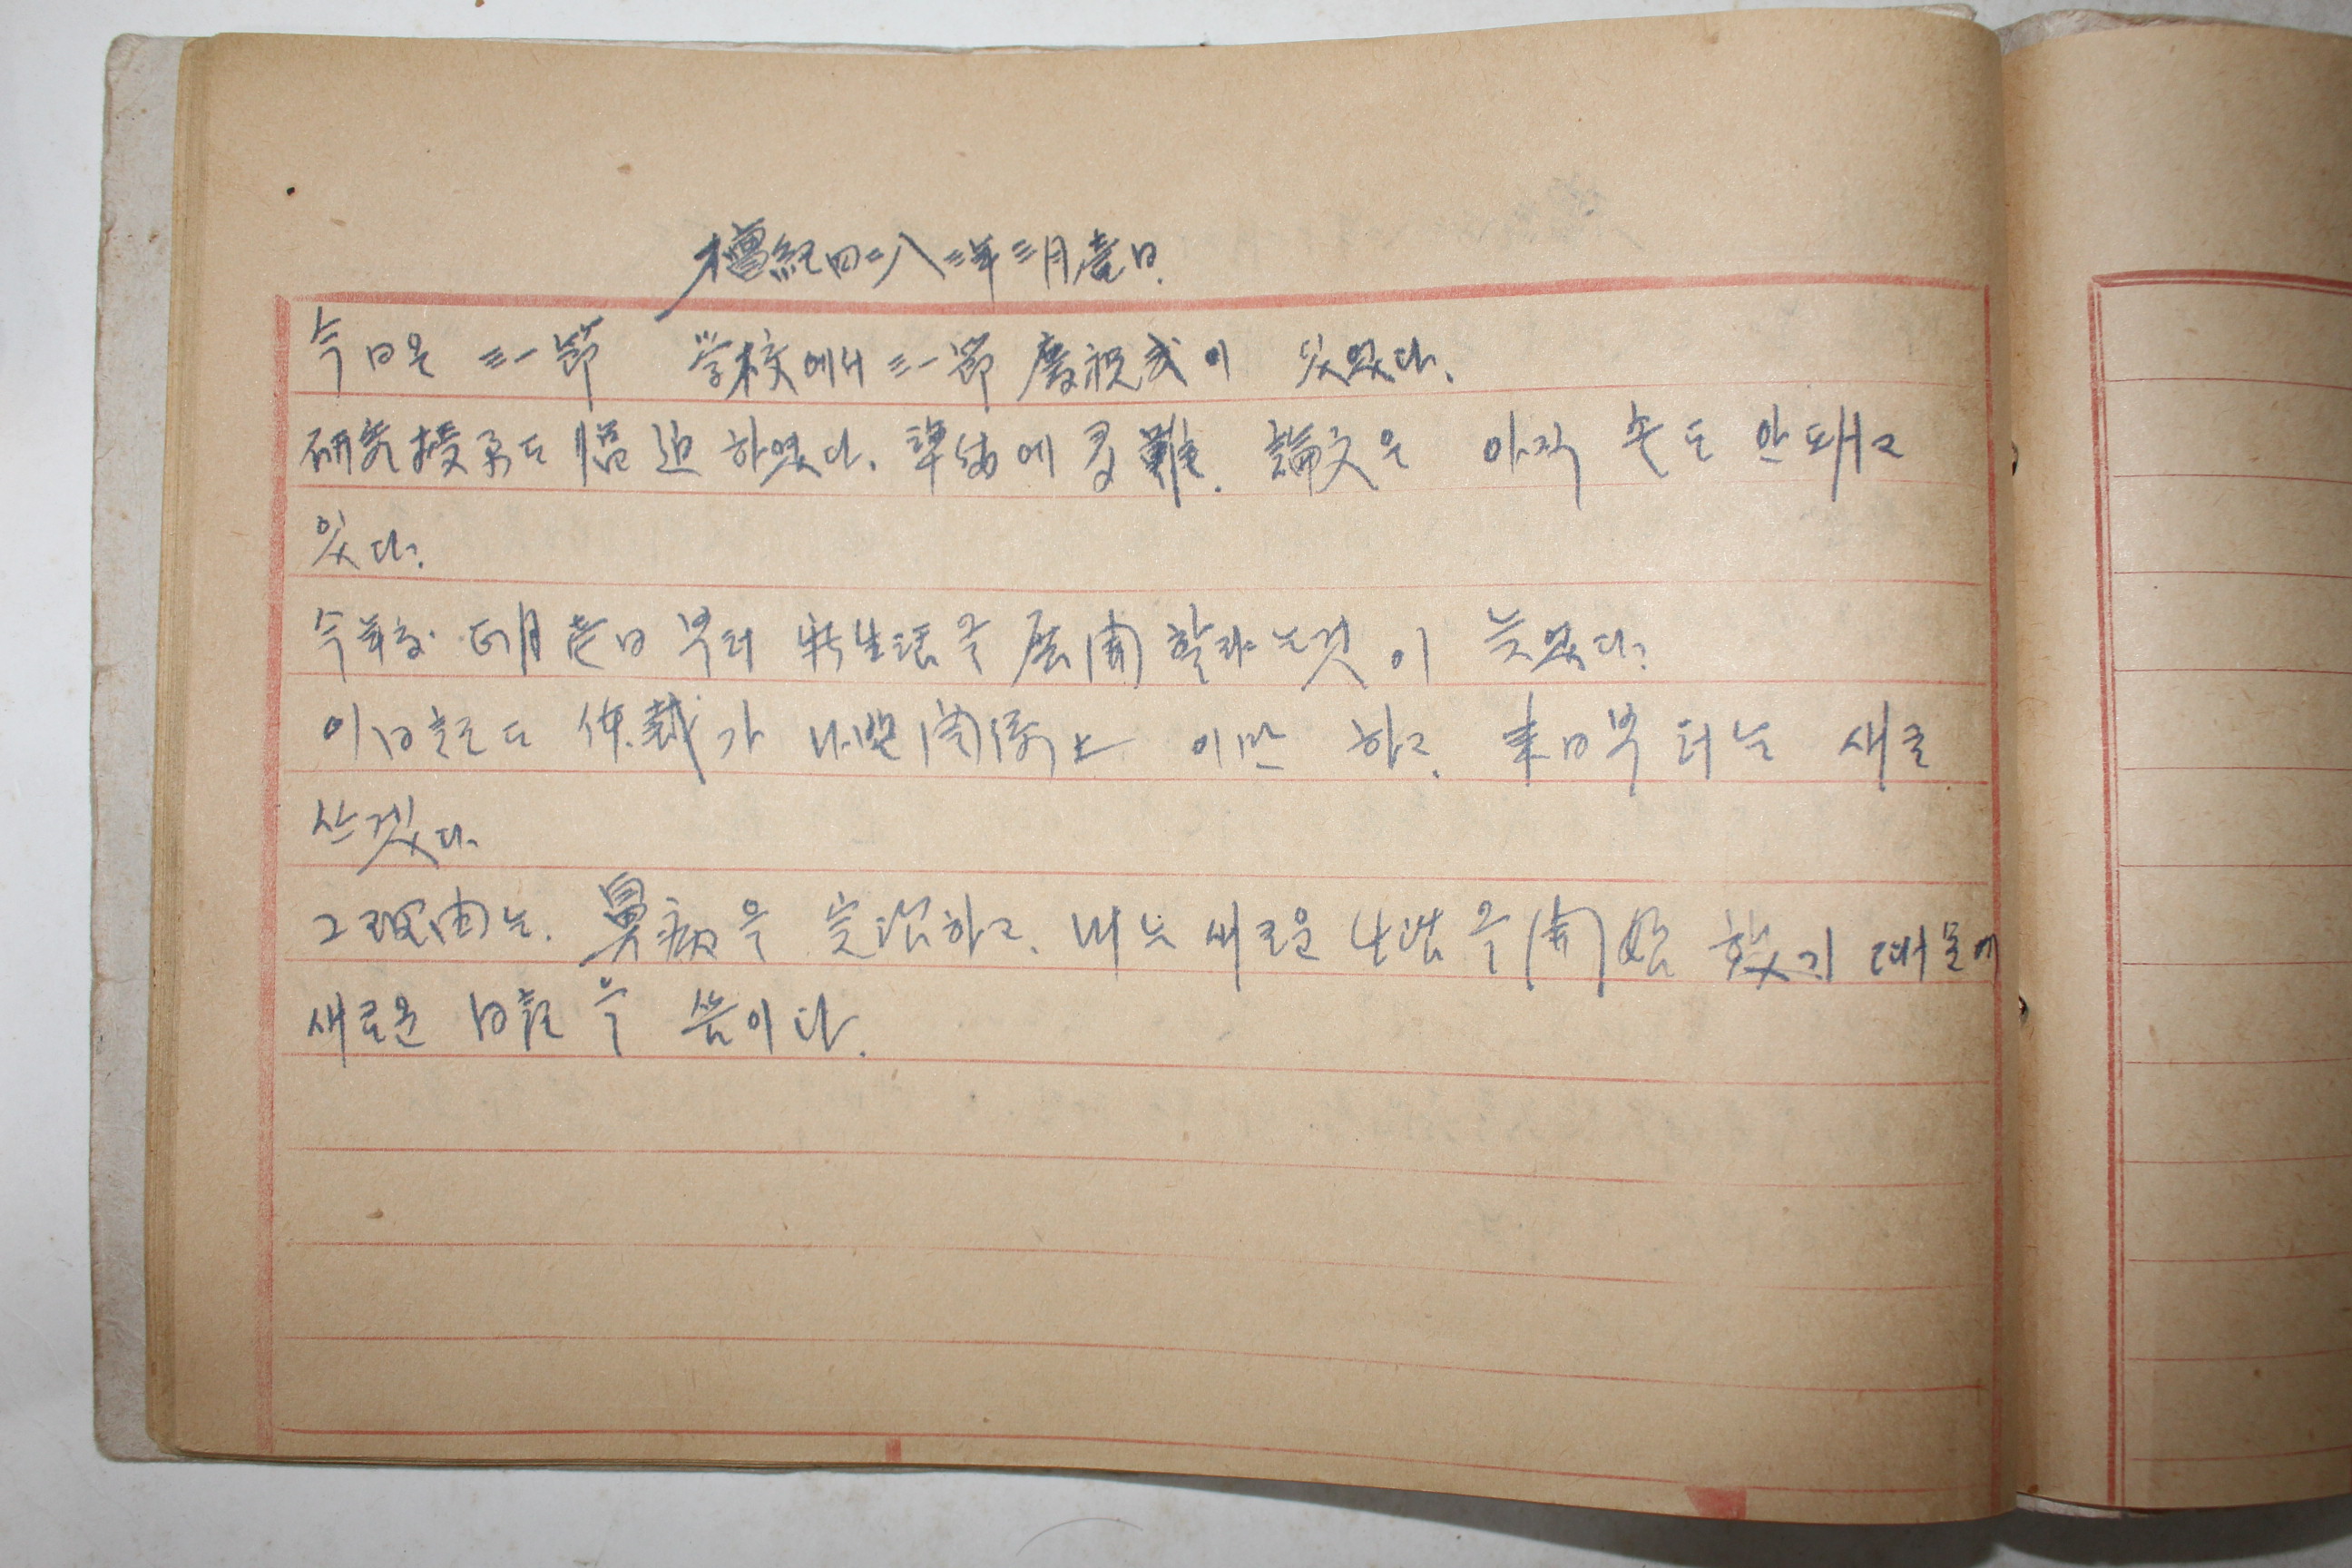 檀紀四二八三年三月壱日.
今日은 三一節 学校에서 三一節 慶祝式이 있었다.
研究授業도 臨迫하였다. 多難. 論文은 아직 손도 안돼고
있다.
今年度 正月 壱日부터 新生活을 展開할라는것이 늦었다.
이 日記도 体裁가 나뿐 関係上 이만 하고. 来日부터는 새로
쓰겠다.
그 理由는. 鼻病을 完治하고. 내는 새로운 生活을 開始 했기 때문에
새로운 日記을 씀이다.